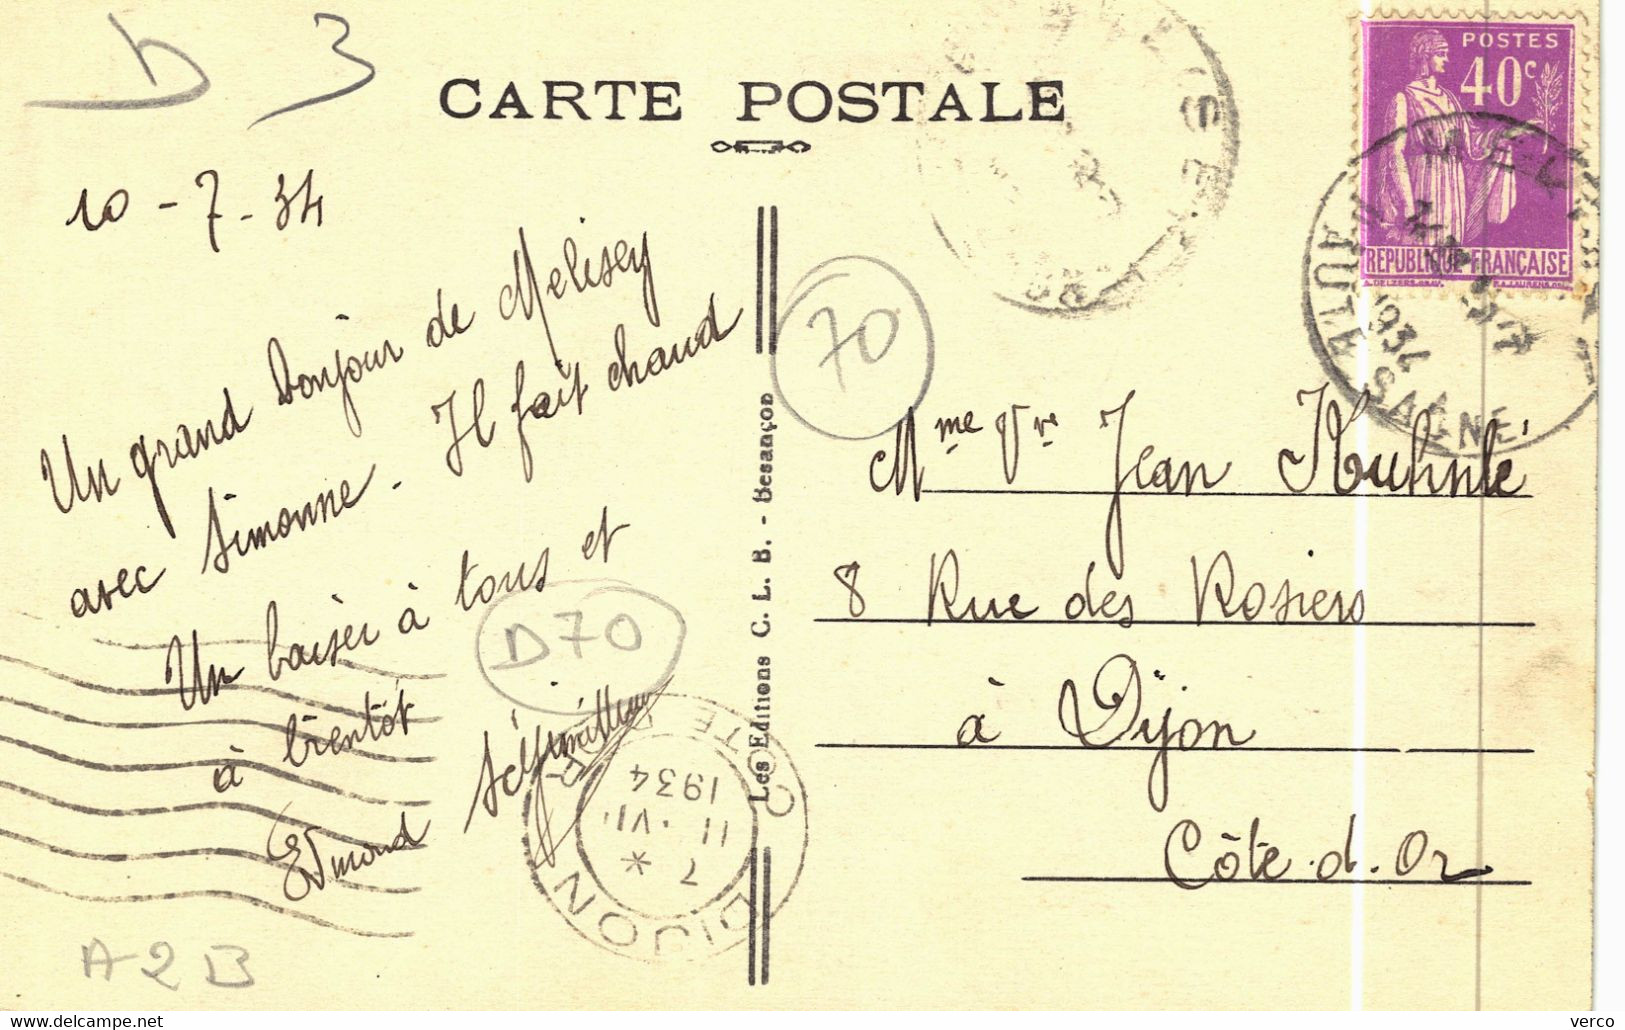 D 3
CARTE POSTALE
POSTES
40c
REPUBLIQUE FRANÇAISE
MELI
HAUTE SAÔNE
1934
10-7-34
Un grand bonjour de Melisey
avec Simonne. Il fait chaud
Un baiser à tous et
à bientôt
Edmond
D70
70
Les Editions C. L. B. - Besançon
Mme Vve Jean
8 Rue des Rosiers
à Dijon
Côte-d'Or
DIJON
COTE D'OR
7
11 VII
1934
A2B
verco